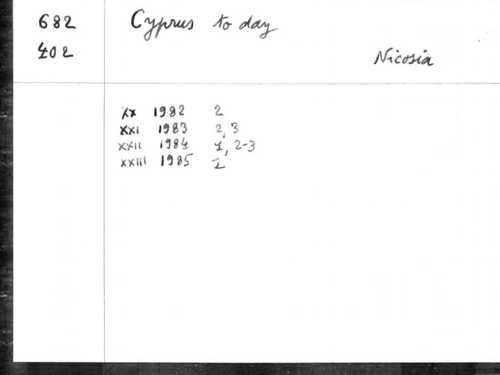 682 Cyprus to day
402 Nicosia
xx 1982 2
xxi 1983 2, 3
xxii 1984 1, 2-3
xxiii 1985 1